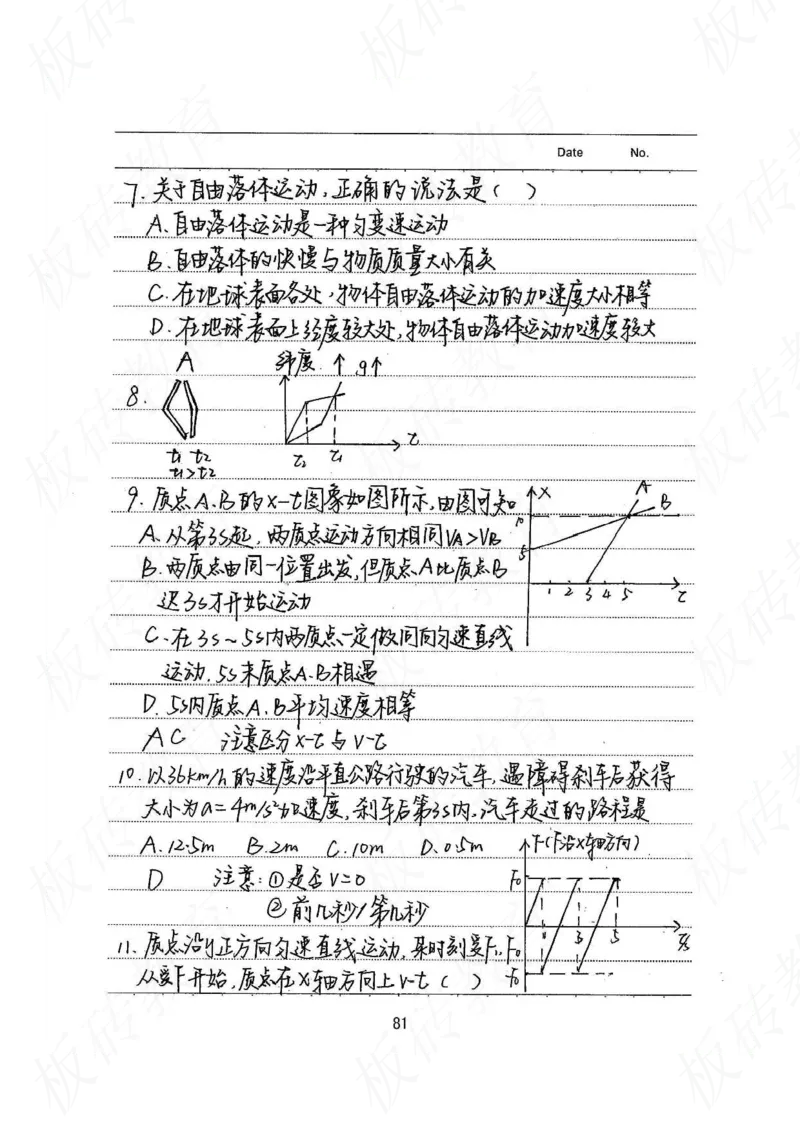 Date No.
7. 关于自由落体运动,正确的说法是( )
A. 自由落体运动是一种匀变速运动
B. 自由落体的快慢与物质质量大小有关
C. 在地球表面各处,物体自由落体运动的加速度大小相等
D. 在地球表面上经度较大处,物体自由落体运动加速度较大
A 纬度 ↑ g↑
8.
t
t₁ t₂
t₂ t₁
t₁>t₂
9. 质点A.B的x-t图象如图所示,由图可知
x A B
10
5
1 2 3 4 5 t
A. 从第3s起,两质点运动方向相同 VA>VB
B. 两质点由同一位置出发,但质点A比质点B
迟3s才开始运动
C. 在3s~5s内两质点一定做同向匀速直线
运动.5s末质点A.B相遇
D. 5s内质点A.B平均速度相等
AC 注意区分x-t与v-t
10. 以36km/h的速度沿平直公路行驶的汽车,遇障碍刹车后获得
大小为a=4m/s²加速度,刹车后第3s内,汽车走过的路程是
A. 12.5m B. 2m C. 10m D. 0.5m
F(F沿x轴方向)
D 注意:①是否v=0
②前几秒/第几秒
F₀
1 3 5
-f₀
11. 质点沿y正方向匀速直线运动,某时刻受F.
从受F开始,质点在x轴方向上v-t ( )
81
板砖教育